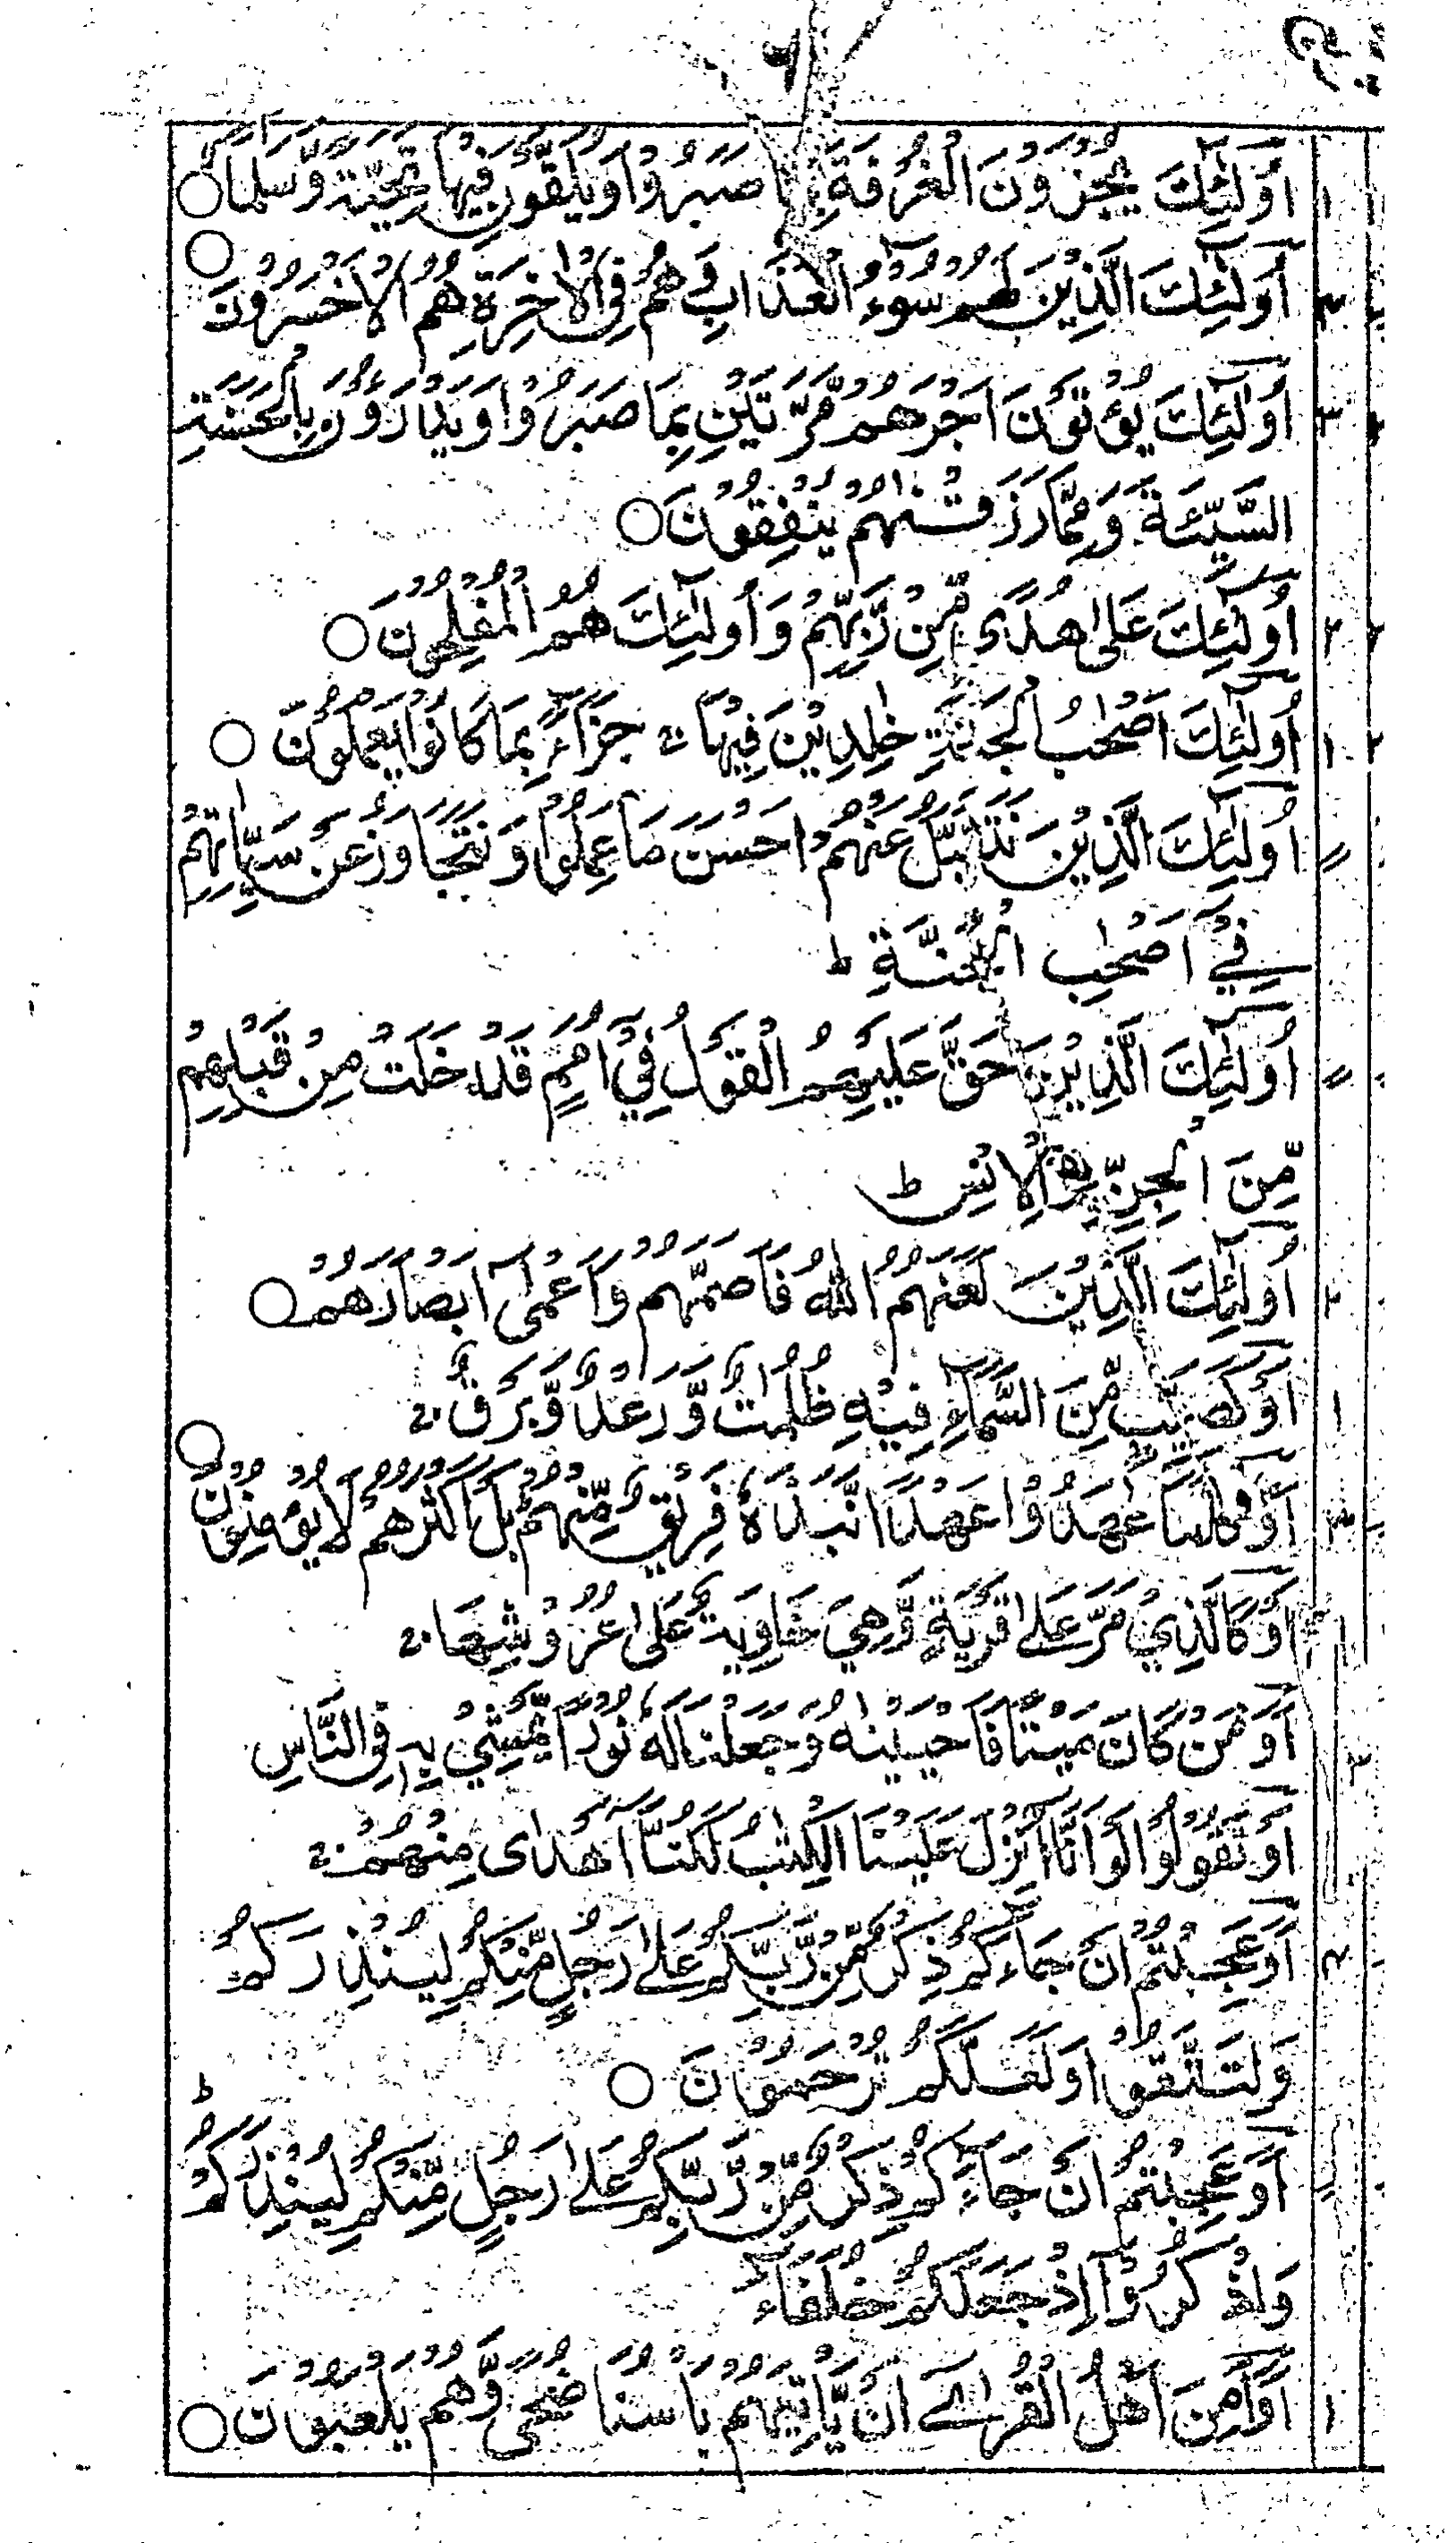 اُولٰٓئِكَ يُجْزَوْنَ الْغُرْفَةَ بِمَا صَبَرُوْا وَيُلَقَّوْنَ فِيْهَا تَحِيَّةً وَّسَلٰمًا ○
اُولٰٓئِكَ الَّذِيْنَ لَهُمْ سُوْٓءُ الْعَذَابِ وَهُمْ فِي الْاٰخِرَةِ هُمُ الْاَخْسَرُوْنَ ○
اُولٰٓئِكَ يُؤْتَوْنَ اَجْرَهُمْ مَّرَّتَيْنِ بِمَا صَبَرُوْا وَيَدْرَءُوْنَ بِالْحَسَنَةِ
السَّيِّئَةَ وَمِمَّا رَزَقْنٰهُمْ يُنْفِقُوْنَ ○
اُولٰٓئِكَ عَلٰى هُدًى مِّنْ رَّبِّهِمْ وَاُولٰٓئِكَ هُمُ الْمُفْلِحُوْنَ ○
اُولٰٓئِكَ اَصْحٰبُ الْجَنَّةِ خٰلِدِيْنَ فِيْهَا ۚ جَزَآءًۢ بِمَا كَانُوْا يَعْمَلُوْنَ ○
اُولٰٓئِكَ الَّذِيْنَ نَتَقَبَّلُ عَنْهُمْ اَحْسَنَ مَا عَمِلُوْا وَنَتَجَاوَزُ عَنْ سَيِّاٰتِهِمْ
فِيْٓ اَصْحٰبِ الْجَنَّةِ ط
اُولٰٓئِكَ الَّذِيْنَ حَقَّ عَلَيْهِمُ الْقَوْلُ فِيْٓ اُمَمٍ قَدْ خَلَتْ مِنْ قَبْلِهِمْ
مِّنَ الْجِنِّ وَالْاِنْسِ ط
اُولٰٓئِكَ الَّذِيْنَ لَعَنَهُمُ اللّٰهُ فَاَصَمَّهُمْ وَاَعْمٰٓى اَبْصَارَهُمْ ○
اَوْ كَصَيِّبٍ مِّنَ السَّمَآءِ فِيْهِ ظُلُمٰتٌ وَّرَعْدٌ وَّبَرْقٌ ۚ
اَوَكُلَّمَا عٰهَدُوْا عَهْدًا نَّبَذَهٗ فَرِيْقٌ مِّنْهُمْ بَلْ اَكْثَرُهُمْ لَا يُؤْمِنُوْنَ ○
اَوْ كَالَّذِيْ مَرَّ عَلٰى قَرْيَةٍ وَّهِيَ خَاوِيَةٌ عَلٰى عُرُوْشِهَا ۚ
اَوَمَنْ كَانَ مَيْتًا فَاَحْيَيْنٰهُ وَجَعَلْنَا لَهٗ نُوْرًا يَّمْشِيْ بِهٖ فِي النَّاسِ
اَوْ تَقُوْلُوْا لَوْ اَنَّآ اُنْزِلَ عَلَيْنَا الْكِتٰبُ لَكُنَّآ اَهْدٰى مِنْهُمْ ۚ
اَوَعَجِبْتُمْ اَنْ جَآءَكُمْ ذِكْرٌ مِّنْ رَّبِّكُمْ عَلٰى رَجُلٍ مِّنْكُمْ لِيُنْذِرَكُمْ
وَلِتَتَّقُوْا وَلَعَلَّكُمْ تُرْحَمُوْنَ ○
اَوَعَجِبْتُمْ اَنْ جَآءَكُمْ ذِكْرٌ مِّنْ رَّبِّكُمْ عَلٰى رَجُلٍ مِّنْكُمْ لِيُنْذِرَكُمْ ط
وَاذْكُرُوْٓا اِذْ جَعَلَكُمْ خُلَفَآءَ
اَوَاَمِنَ اَهْلُ الْقُرٰٓى اَنْ يَّاْتِيَهُمْ بَاْسُنَا ضُحًى وَّهُمْ يَلْعَبُوْنَ ○